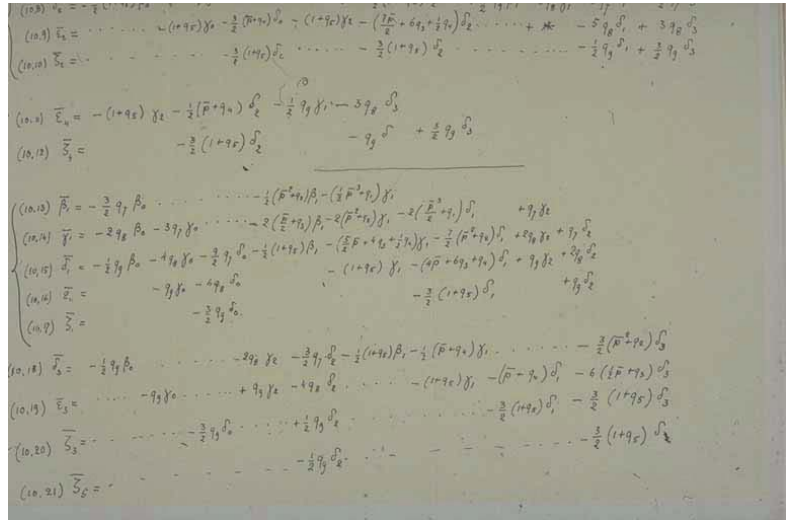 (10,9) ε̄₂ = · · · · · -(1+q₅)γ₀ - 3/2 (p̄+q₄)δ₀ - (1+q₅)γ₂ - (7p̄/2 + 6q₃ + 1/2 q₄)δ₂ · · · · · + - 5q₈δ₁ + 3q₈δ₃
(10,10) ζ̄₂ = · · · · · - 3/2 (1+q₅)δ₂ · · · · · - 3/2 (1+q₅)δ₂ · · · · · - 1/2 q₉δ₁ + 3/2 q₉δ₃
(10,11) ε̄₄ = -(1+q₅)γ₂ - 1/2 (p̄+q₄)δ₂ - 1/2 q₉γ₁ - 3q₈δ₃
(10,12) ζ̄₄ = - 3/2 (1+q₅)δ₂ - q₉δ + 3/2 q₉δ₃
(10,13) β̄₁ = - 3/2 q₇β₀ · · · · · - 1/2 (p̄²+q₂)β₁ - (1/2 p̄³+q₁)γ₁
(10,14) γ̄₁ = - 2q₈β₀ - 3q₇γ₀ · · · · · - 2(p̄/2+q₃)β₁ - 2(p̄²+q₂)γ₁ - 2(p̄³/2+q₁)δ₁ + q₇γ₂
(10,15) δ̄₁ = - 1/2 q₉β₀ - 4q₈γ₀ - 9/2 q₇δ₀ - 1/2 (1+q₅)β₁ - (5/2 p̄+4q₃+1/2 q₄)γ₁ - 7/2 (p̄²+q₂)δ₁ + 2q₈γ₂ + q₇δ₂
(10,16) ε̄₁ = - q₉γ₀ - 4q₈δ₀ - (1+q₅)γ₁ - (4p̄+6q₃+q₄)δ₁ + q₉γ₂ + 2q₈δ₂
(10,17) ζ̄₁ = - 3/2 q₉δ₀ - 3/2 (1+q₅)δ₁ + q₉δ₂
(10,18) δ̄₃ = - 1/2 q₉β₀ · · · · · - 2q₈γ₂ - 3/2 q₇δ₂ - 1/2 (1+q₅)β₁ - 1/2 (p̄+q₄)γ₁ · · · · · - 3/2 (p̄²+q₂)δ₃
(10,19) ε̄₃ = · · · · · - q₉γ₀ · · · · · + q₉γ₂ - 4q₈δ₂ · · · · · - (1+q₅)γ₁ - (p̄+q₄)δ₁ - 6(1/2 p̄+q₃)δ₃
(10,20) ζ̄₃ = · · · · · - 3/2 q₉δ₀ · · · · · + 1/2 q₉δ₂ · · · · · - 3/2 (1+q₅)δ₁ - 3/2 (1+q₅)δ₃
(10,21) ζ̄₅ = · · · · · - 1/2 q₉δ₂ · · · · · - 3/2 (1+q₅)δ₂